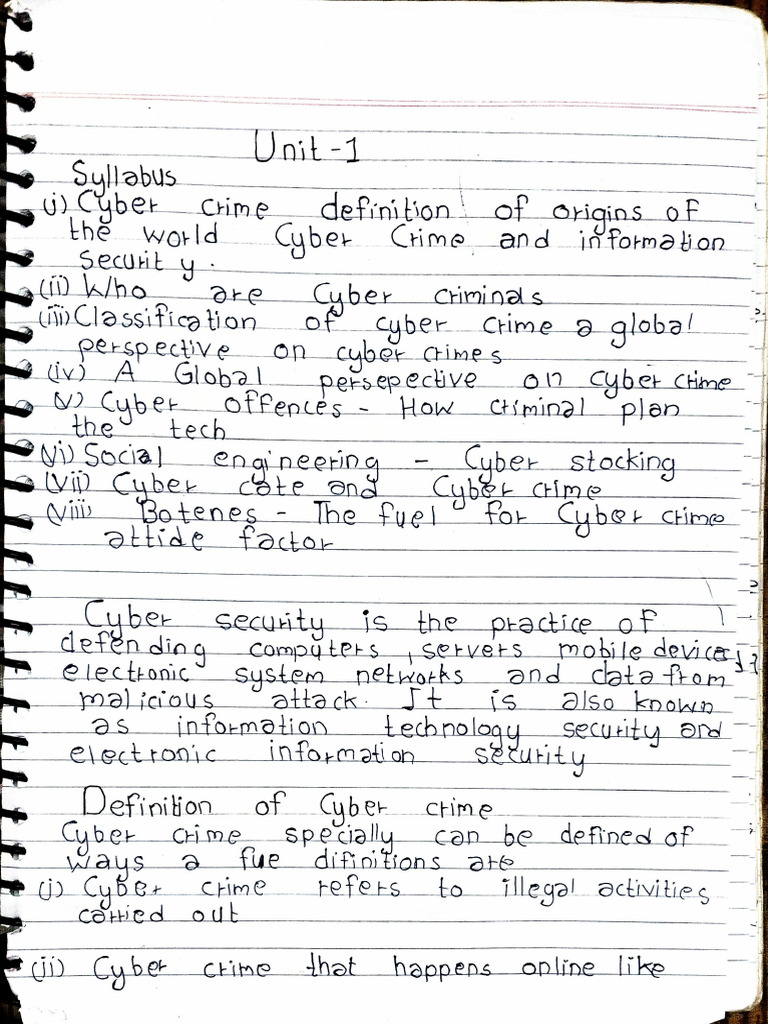 Unit-1
Syllabus
(i) Cyber crime definition of origins of
the world Cyber Crime and information
Securit y.
(ii) Who are Cyber criminals
(iii) Classification of cyber crime a global
perspective on cyber crimes
(iv) A Global persepective on cyber crime
(v) Cyber offences - How criminal plan
the tech
(vi) Social engineering - Cyber stocking
(vii) Cyber cate and Cyber crime
(viii) Botenes - The fuel for Cyber crime
attide factor
Cyber security is the practice of
defending computers, servers mobile devices
electronic system networks and data from
malicious attack. It is also known
as information technology security and
electronic information security
Definition of Cyber crime
Cyber crime specially can be defined of
ways a fue difinitions are
(i) Cyber crime refers to illegal activities
carried out
(ii) Cyber crime that happens online like